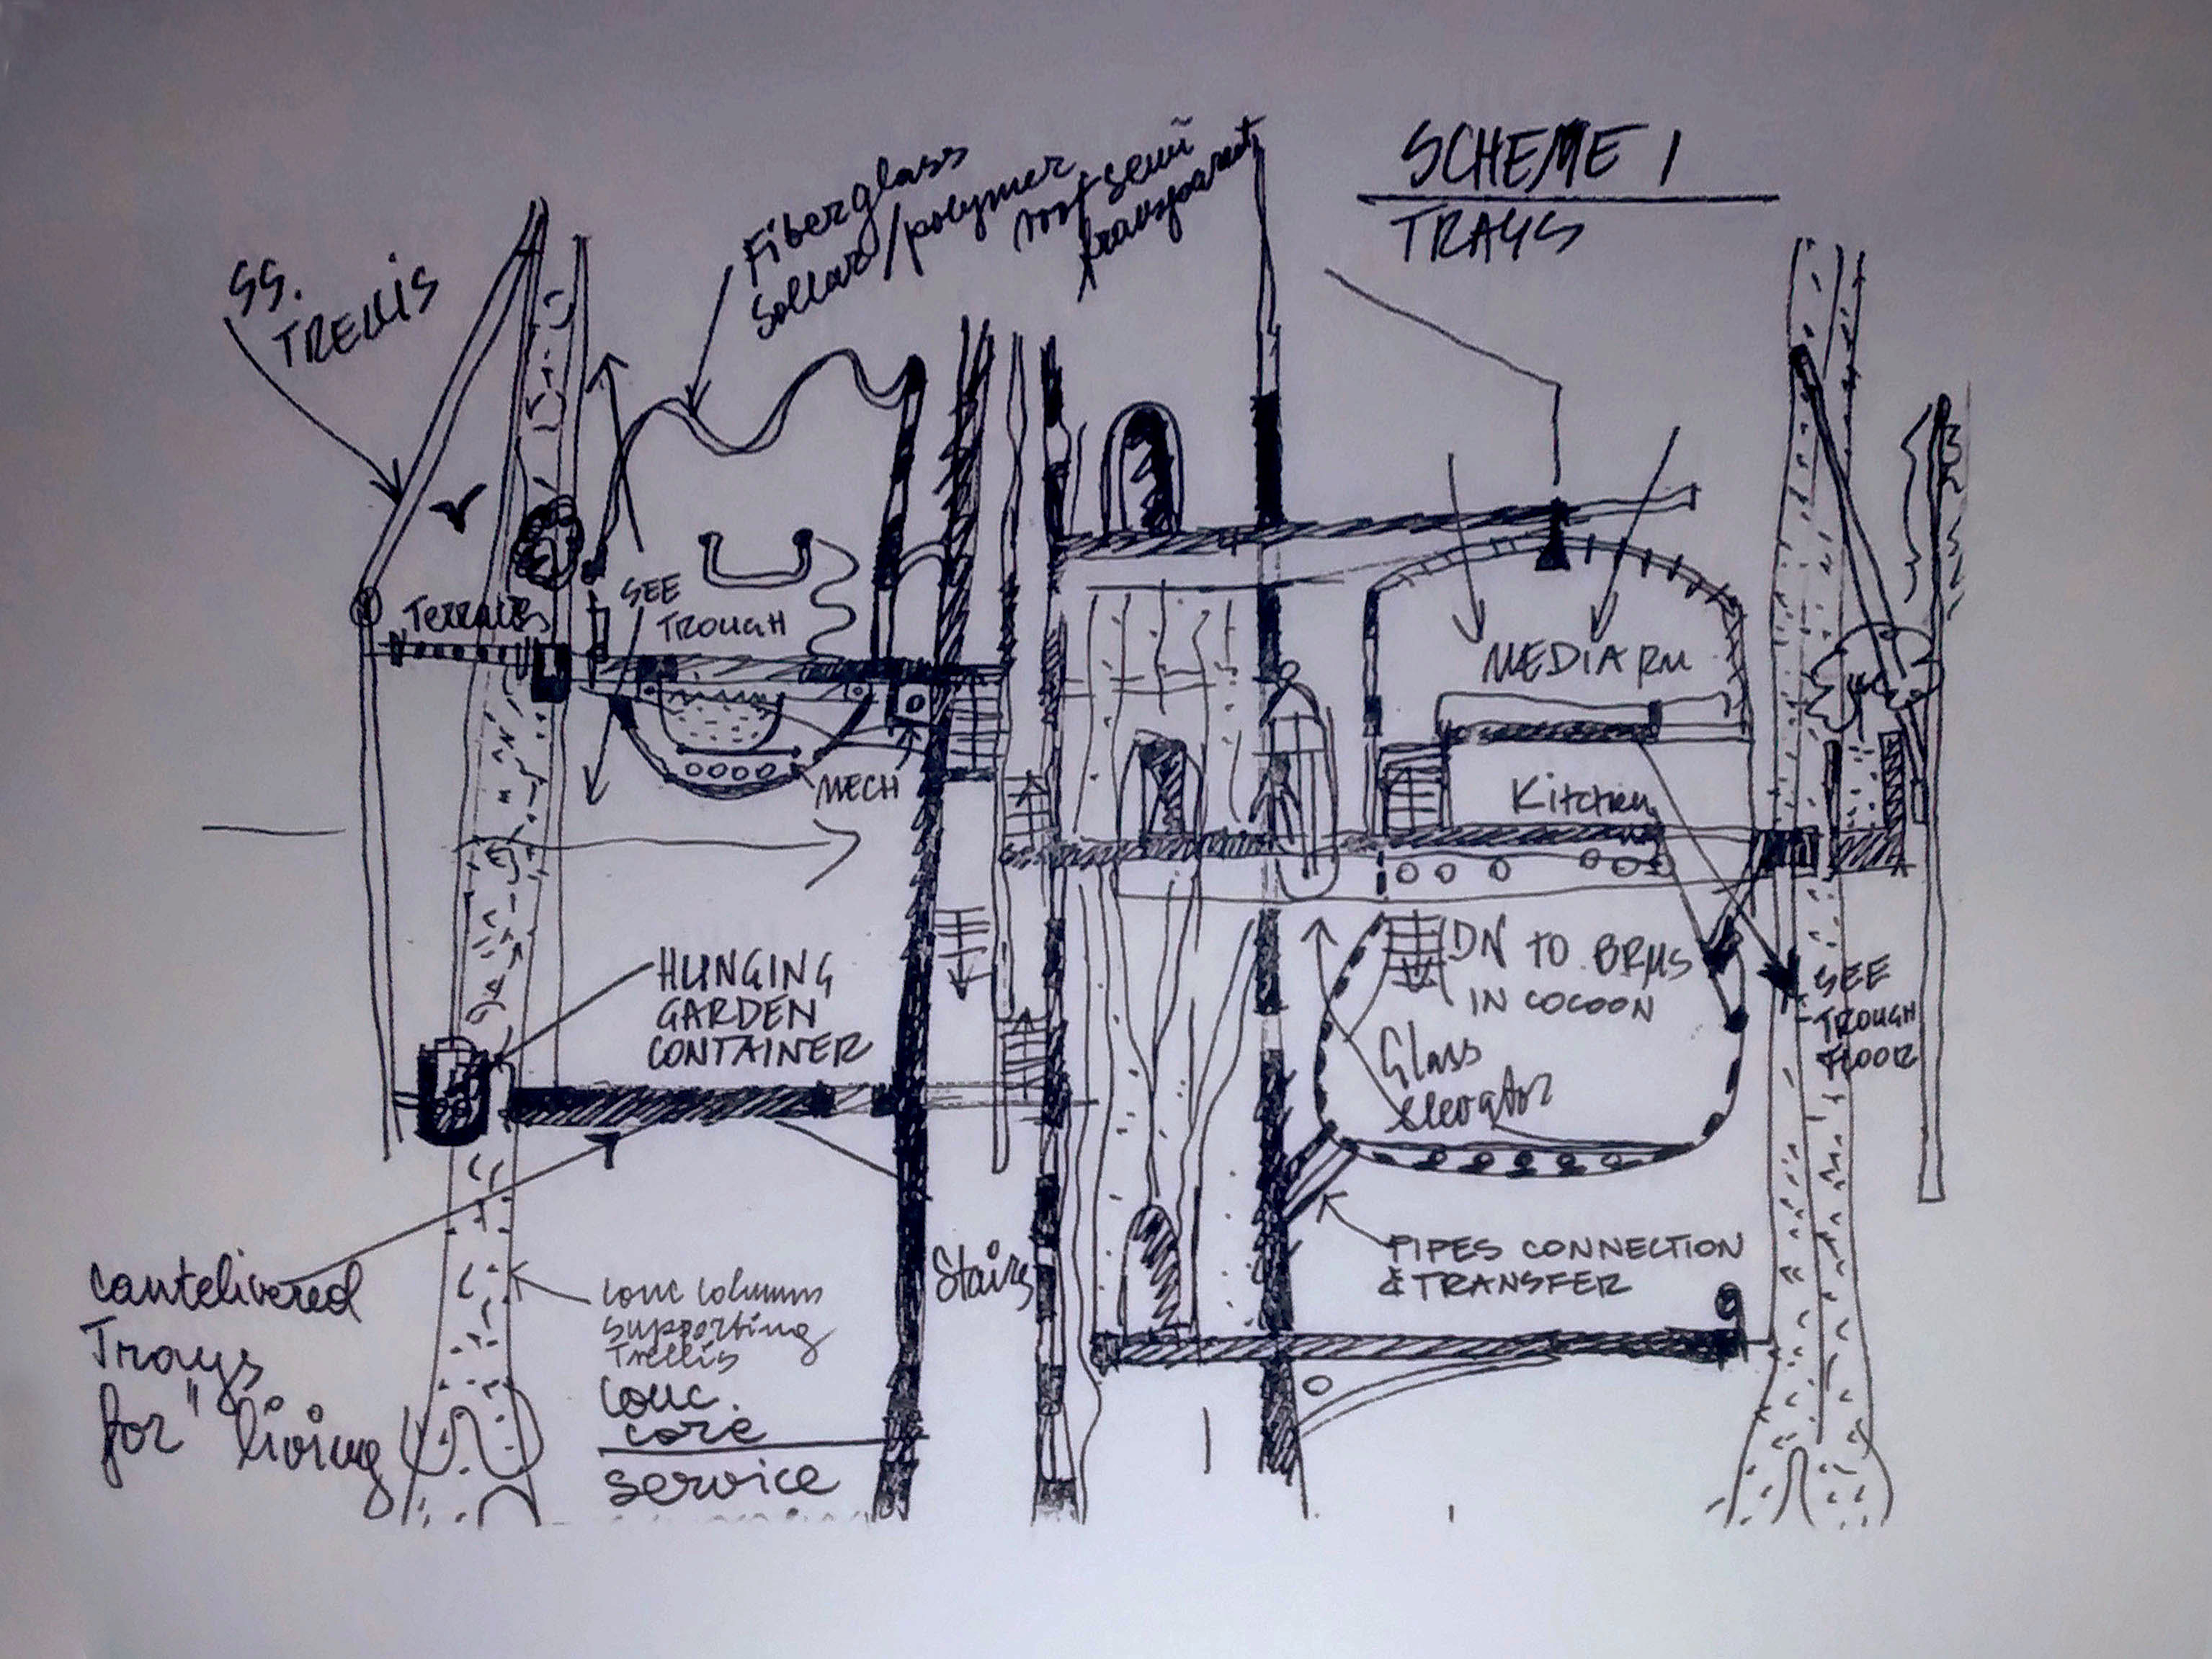 SCHEME 1
TRAYS
SS.
TRELLIS
Fiberglass
Sollar/polymer
roof semi
transparent
Terraces
SEE
TROUGH
MECH
MEDIA RM
Kitchen
HUNGING
GARDEN
CONTAINER
DN TO BRMS
IN COCOON
Glass
elevator
SEE
TROUGH
FLOOR
PIPES CONNECTION
& TRANSFER
Stairs
cantelivered
Trays
for "living
conc columns
supporting
Trellis
conc.
core
service